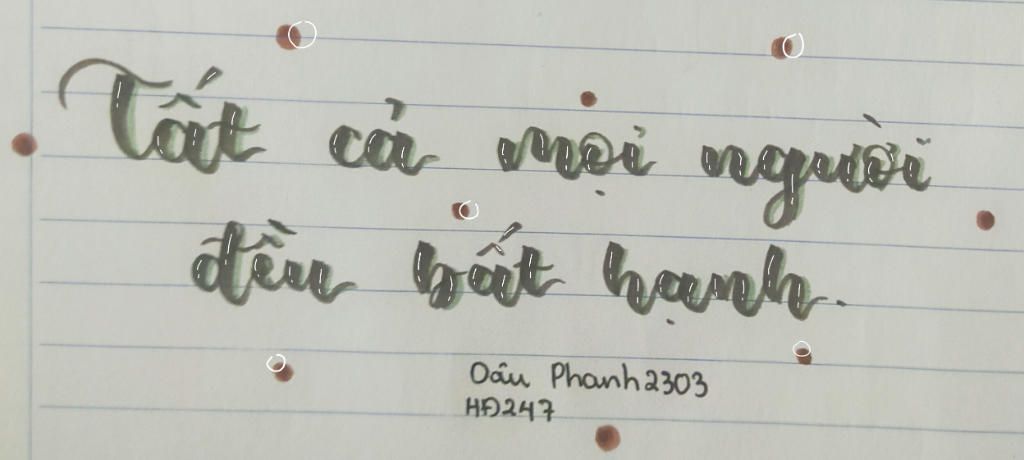 Tất cả mọi người
đều bất hạnh.
Dâu Phanh2303
HĐ247